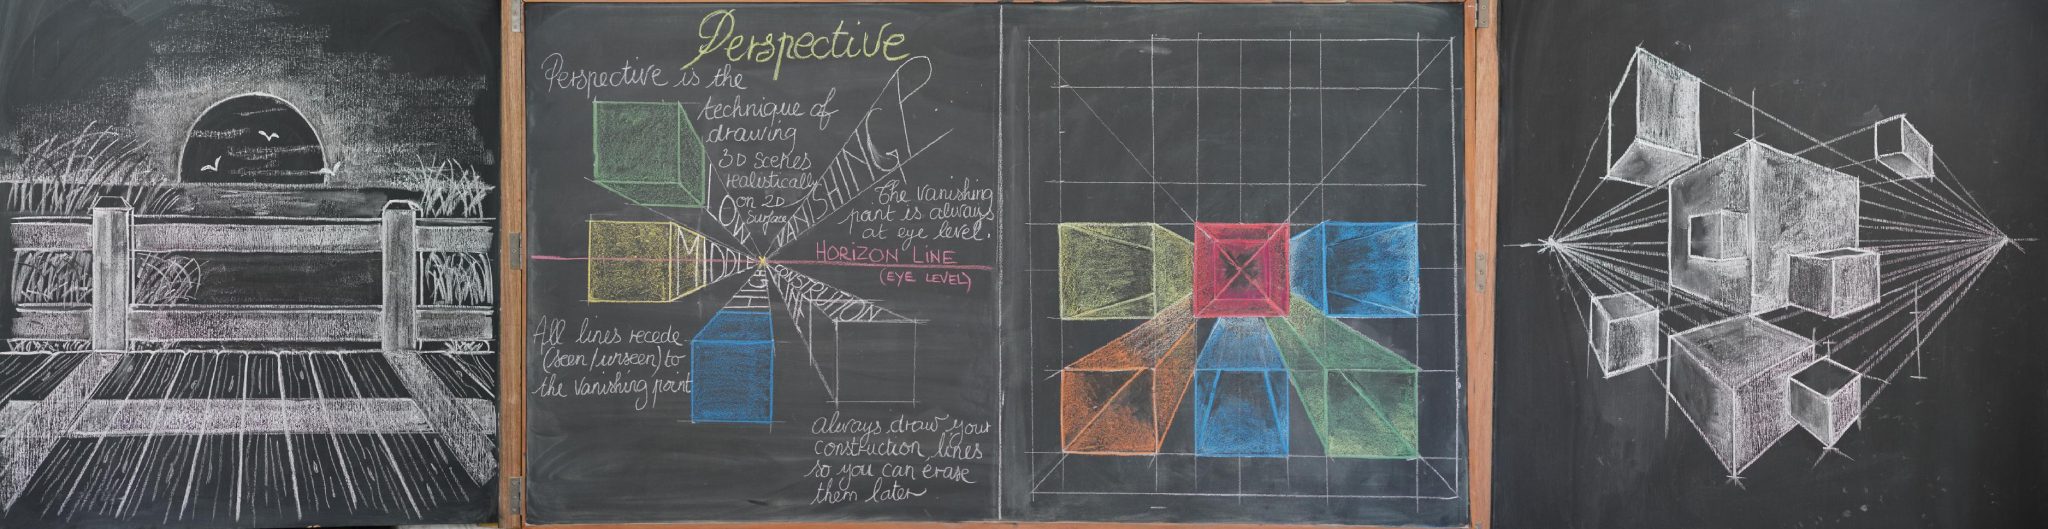 Perspective
Perspective is the
technique of
drawing
3D scenes
realistically
on 2D
surface
VANISHING
The vanishing
point is always
at eye level.
HORIZON LINE
(EYE LEVEL)
LOW
MIDDLE
HIGH
All lines recede
(seen/unseen) to
the vanishing point
always draw your
construction lines
so you can erase
them later